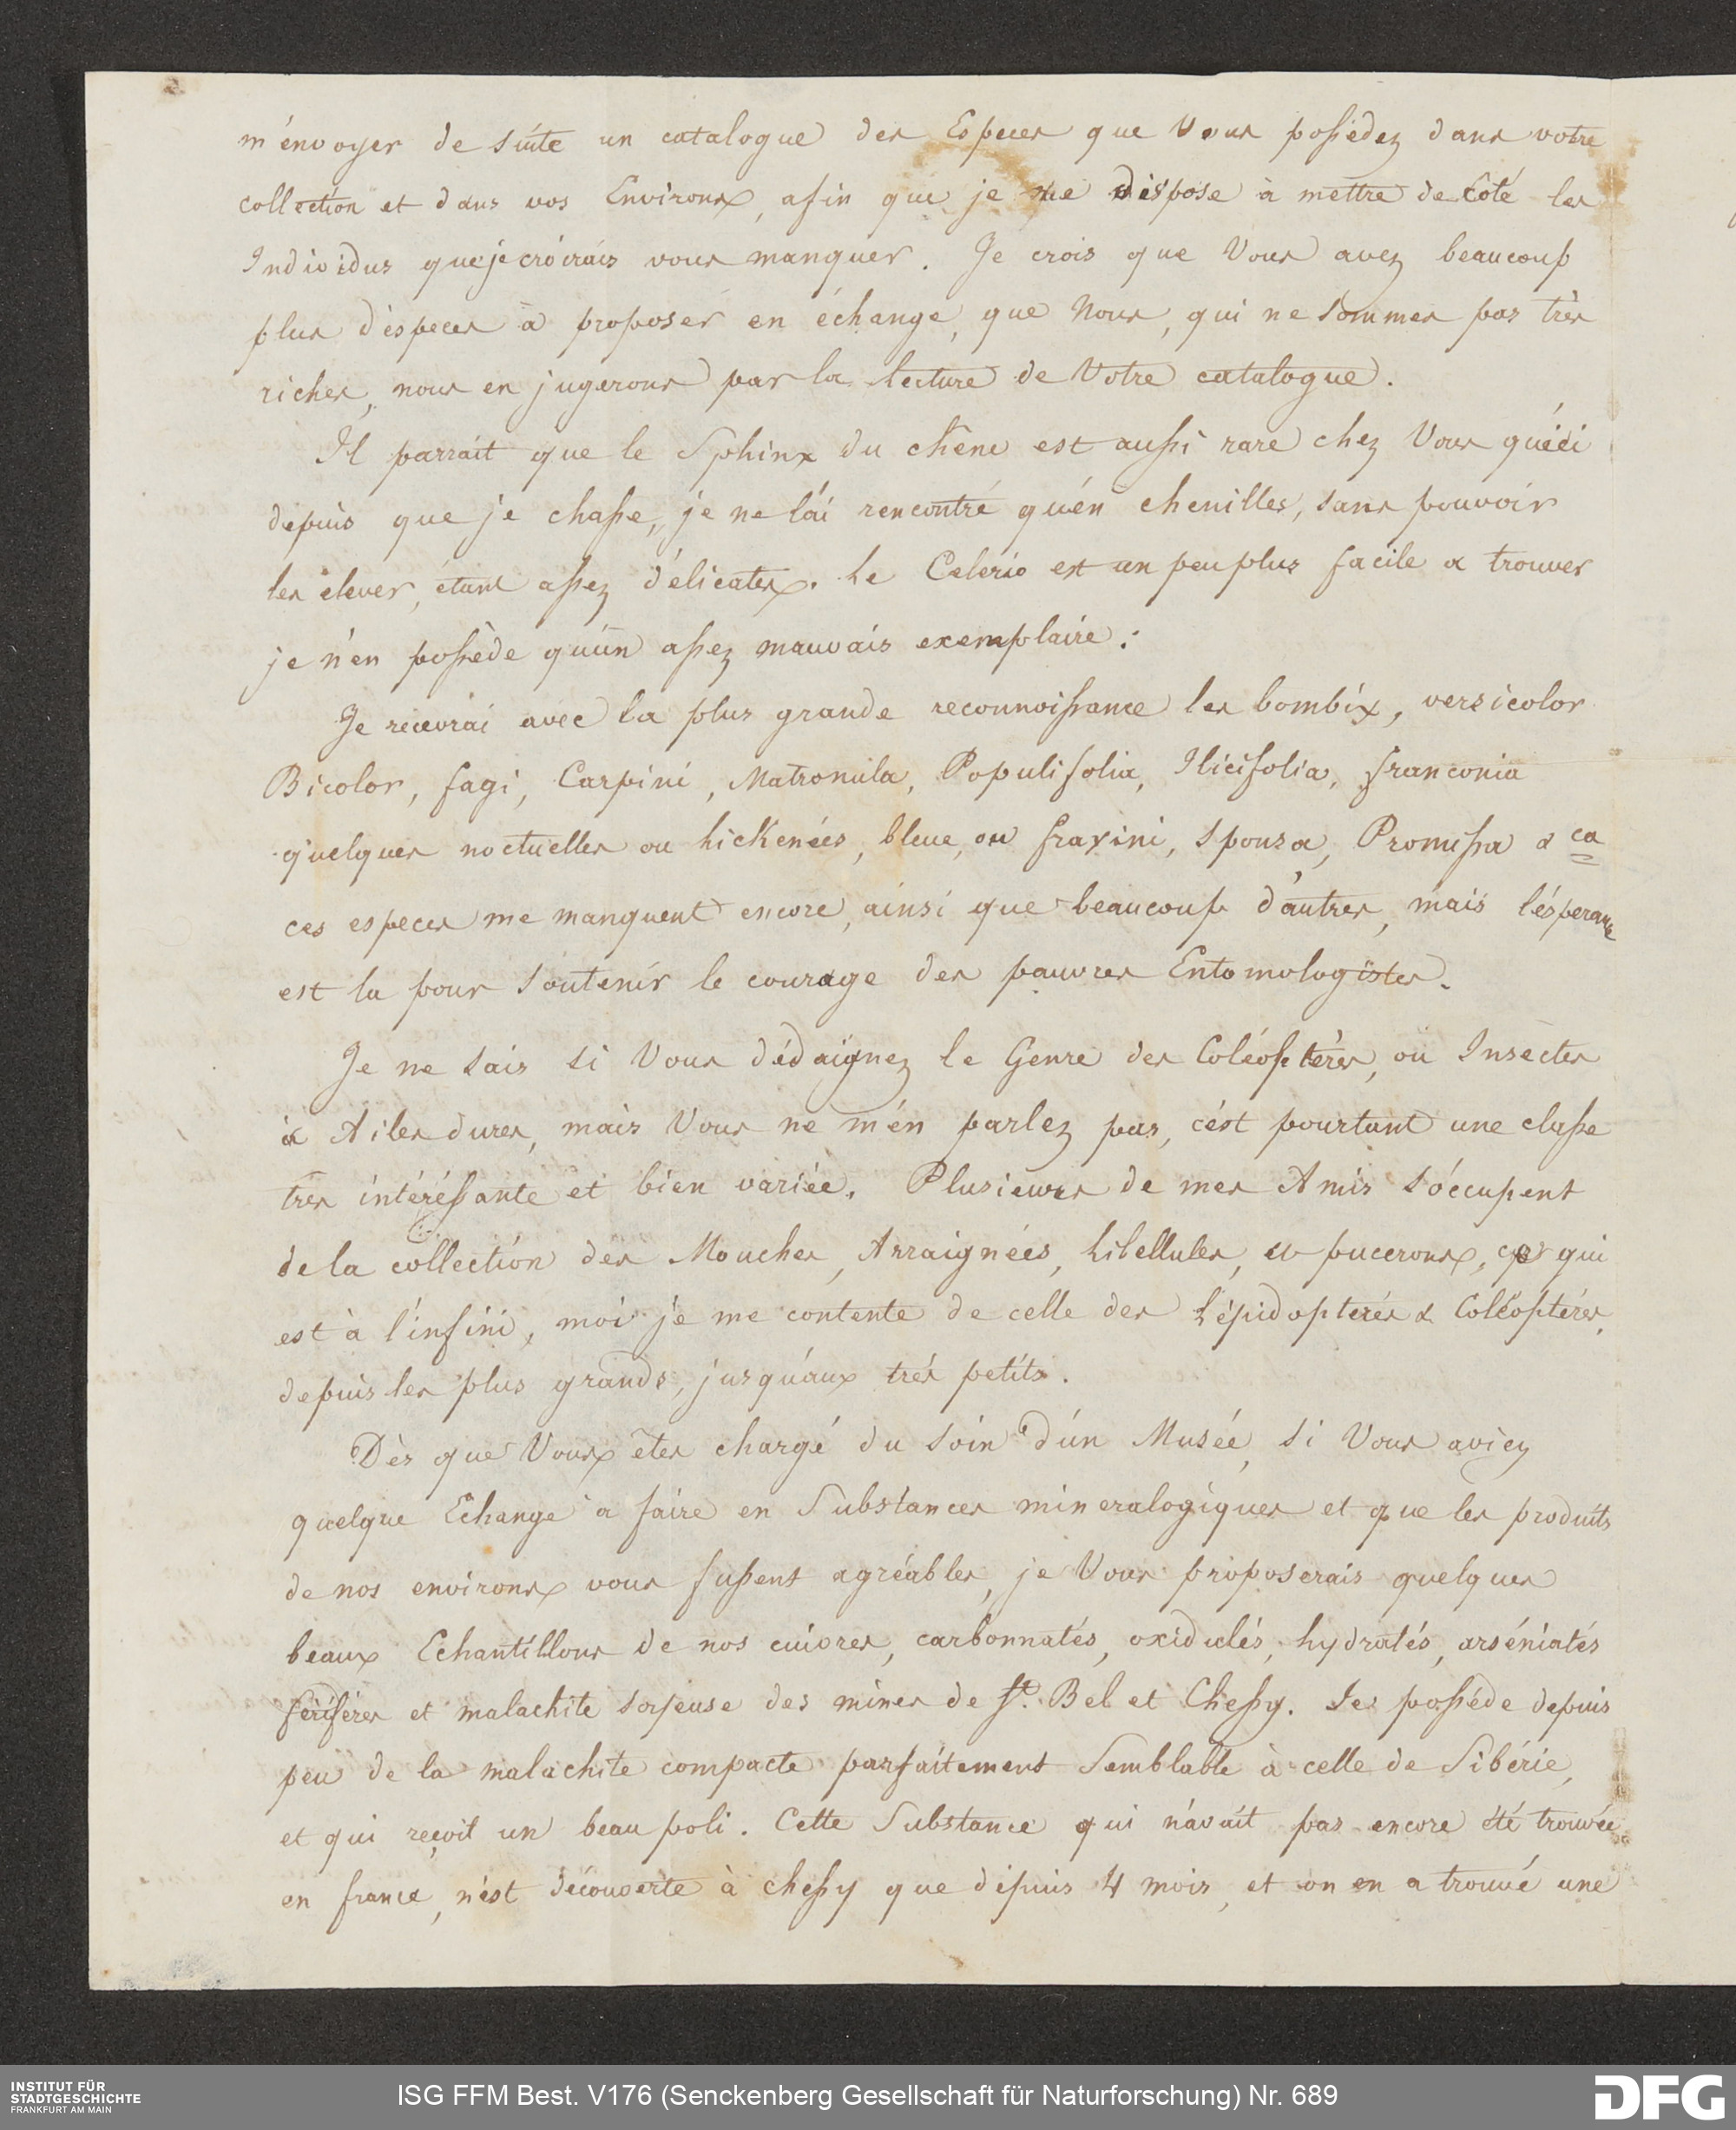 m'envoyer de suite un catalogue des Especes que Vous possédez dans votre
collection et dans vos Environs, afin que je me dispose à mettre de Coté les
Individus que je croirais vous manquer. Je crois que Vous avez beaucoup
plus d'especes à proposer en échange, que Nous, qui ne sommes pas très
riches, nous en jugerons par la lecture de Votre catalogue.
Il parrait que le Sphinx du chêne est aussi rare chez Vous qu'ici
depuis que je chasse, je ne l'ai rencontré qu'en chenilles, sans pouvoir
les elever, étant assez délicates. Le Celerio est un peu plus facile a trouver
je n'en possède qu'un assez mauvais exemplaire.
Je recevrai avec la plus grande reconnoissance les bombix, versicolor
Bicolor, fagi, Carpini, Matronula, Populifolia, Ilicifolia, franconia
quelques noctuelles ou Lickenées, bleue, ou fraxini, Sponsa, Promissa & ca
ces especes me manquent encore, ainsi que beaucoup d'autres, mais l'ésperance
est la pour soutenir le courage des pauvres Entomologistes.
Je ne sais si Vous dédaignez le Genre des Coléoptères, ou Insectes
à Ailes dures, mais Vous ne m'en parlez pas, c'est pourtant une classe
tres intéréssante et bien variée. Plusieurs de mes Amis s'óccupent
de la collection des Mouches, Arraignées, Libellules, et pucerons, ce qui
est à l'infini, moi je me contente de celle des Lépidopterés & Coléoptéres,
depuis les plus grands, jusqu'aux trés petits.
Dès que Vous êtes chargé du soin d'un Musée, si Vous aviez
quelque Echange à faire en Substances mineralogiques et que les produits
de nos environs vous fussent agréables, je Vous proposerais quelques
beaux Echantillons de nos cuivres, carbonnatés, oxidulés, hydratés, arséniatés
fériféres et malachite soyeuse des mines de St. Bel et Chessy. Je possède depuis
peu de la malachite compacte parfaitement Semblable à celle de Sibérie,
et qui reçoit un beau poli. Cette Substance qui n'avait pas encore été trouvée
en france, n'est découverte à chessy que dépuis 4 mois, et on en a trouvé une
INSTITUT FÜR
STADTGESCHICHTE
FRANKFURT AM MAIN
ISG FFM Best. V176 (Senckenberg Gesellschaft für Naturforschung) Nr. 689
DFG